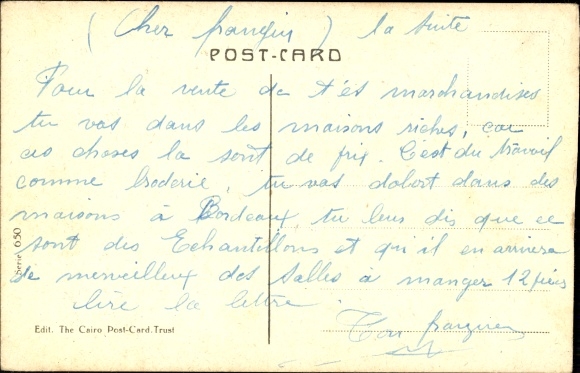 (Cher frangin) la suite
POST-CARD
Pour la vente de tes marchandises
tu vas dans les maisons riches, car
ces choses la sont de prix. C'est du travail
comme broderie, tu vas dabort dans des
maisons à Bordeaux, tu leur dis que ce
sont des Echantillons et qu'il en arrivera
de merveilleux des Salles à manger 12 pièces
lire la lettre.
Ton frangin
Serie 650
Edit. The Cairo Post-Card.Trust